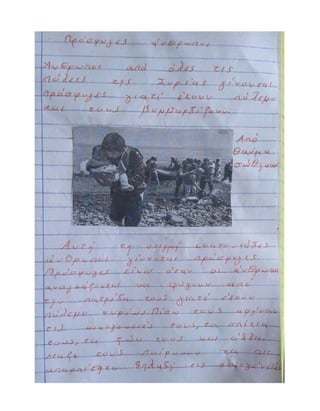 Πρόσφυγες άνθρωποι
Άνθρωποι από όλες τις
πόλεις της Συρίας γίνονται
πρόσφυγες γιατί έχουν πόλεμο
και τους βομβαρδίζουν.
Από
θαύμα
Αυτή τη στιγμή εκατοντάδες
άνθρωποι γίνονται πρόσφυγες.
Πρόσφυγες είναι όταν οι άνθρωποι
αναγκάζονται να φύγουν από
την πατρίδα τους γιατί έχουν
πόλεμο κυρίως. Πίσω τους αφήνουν
τις οικογένειές τους, τα σπίτια
τους, τα ζώα τους και άλλα.
Μαζί τους παίρνουν τα πιο
απαραίτητα δηλαδή τις οικογένειές